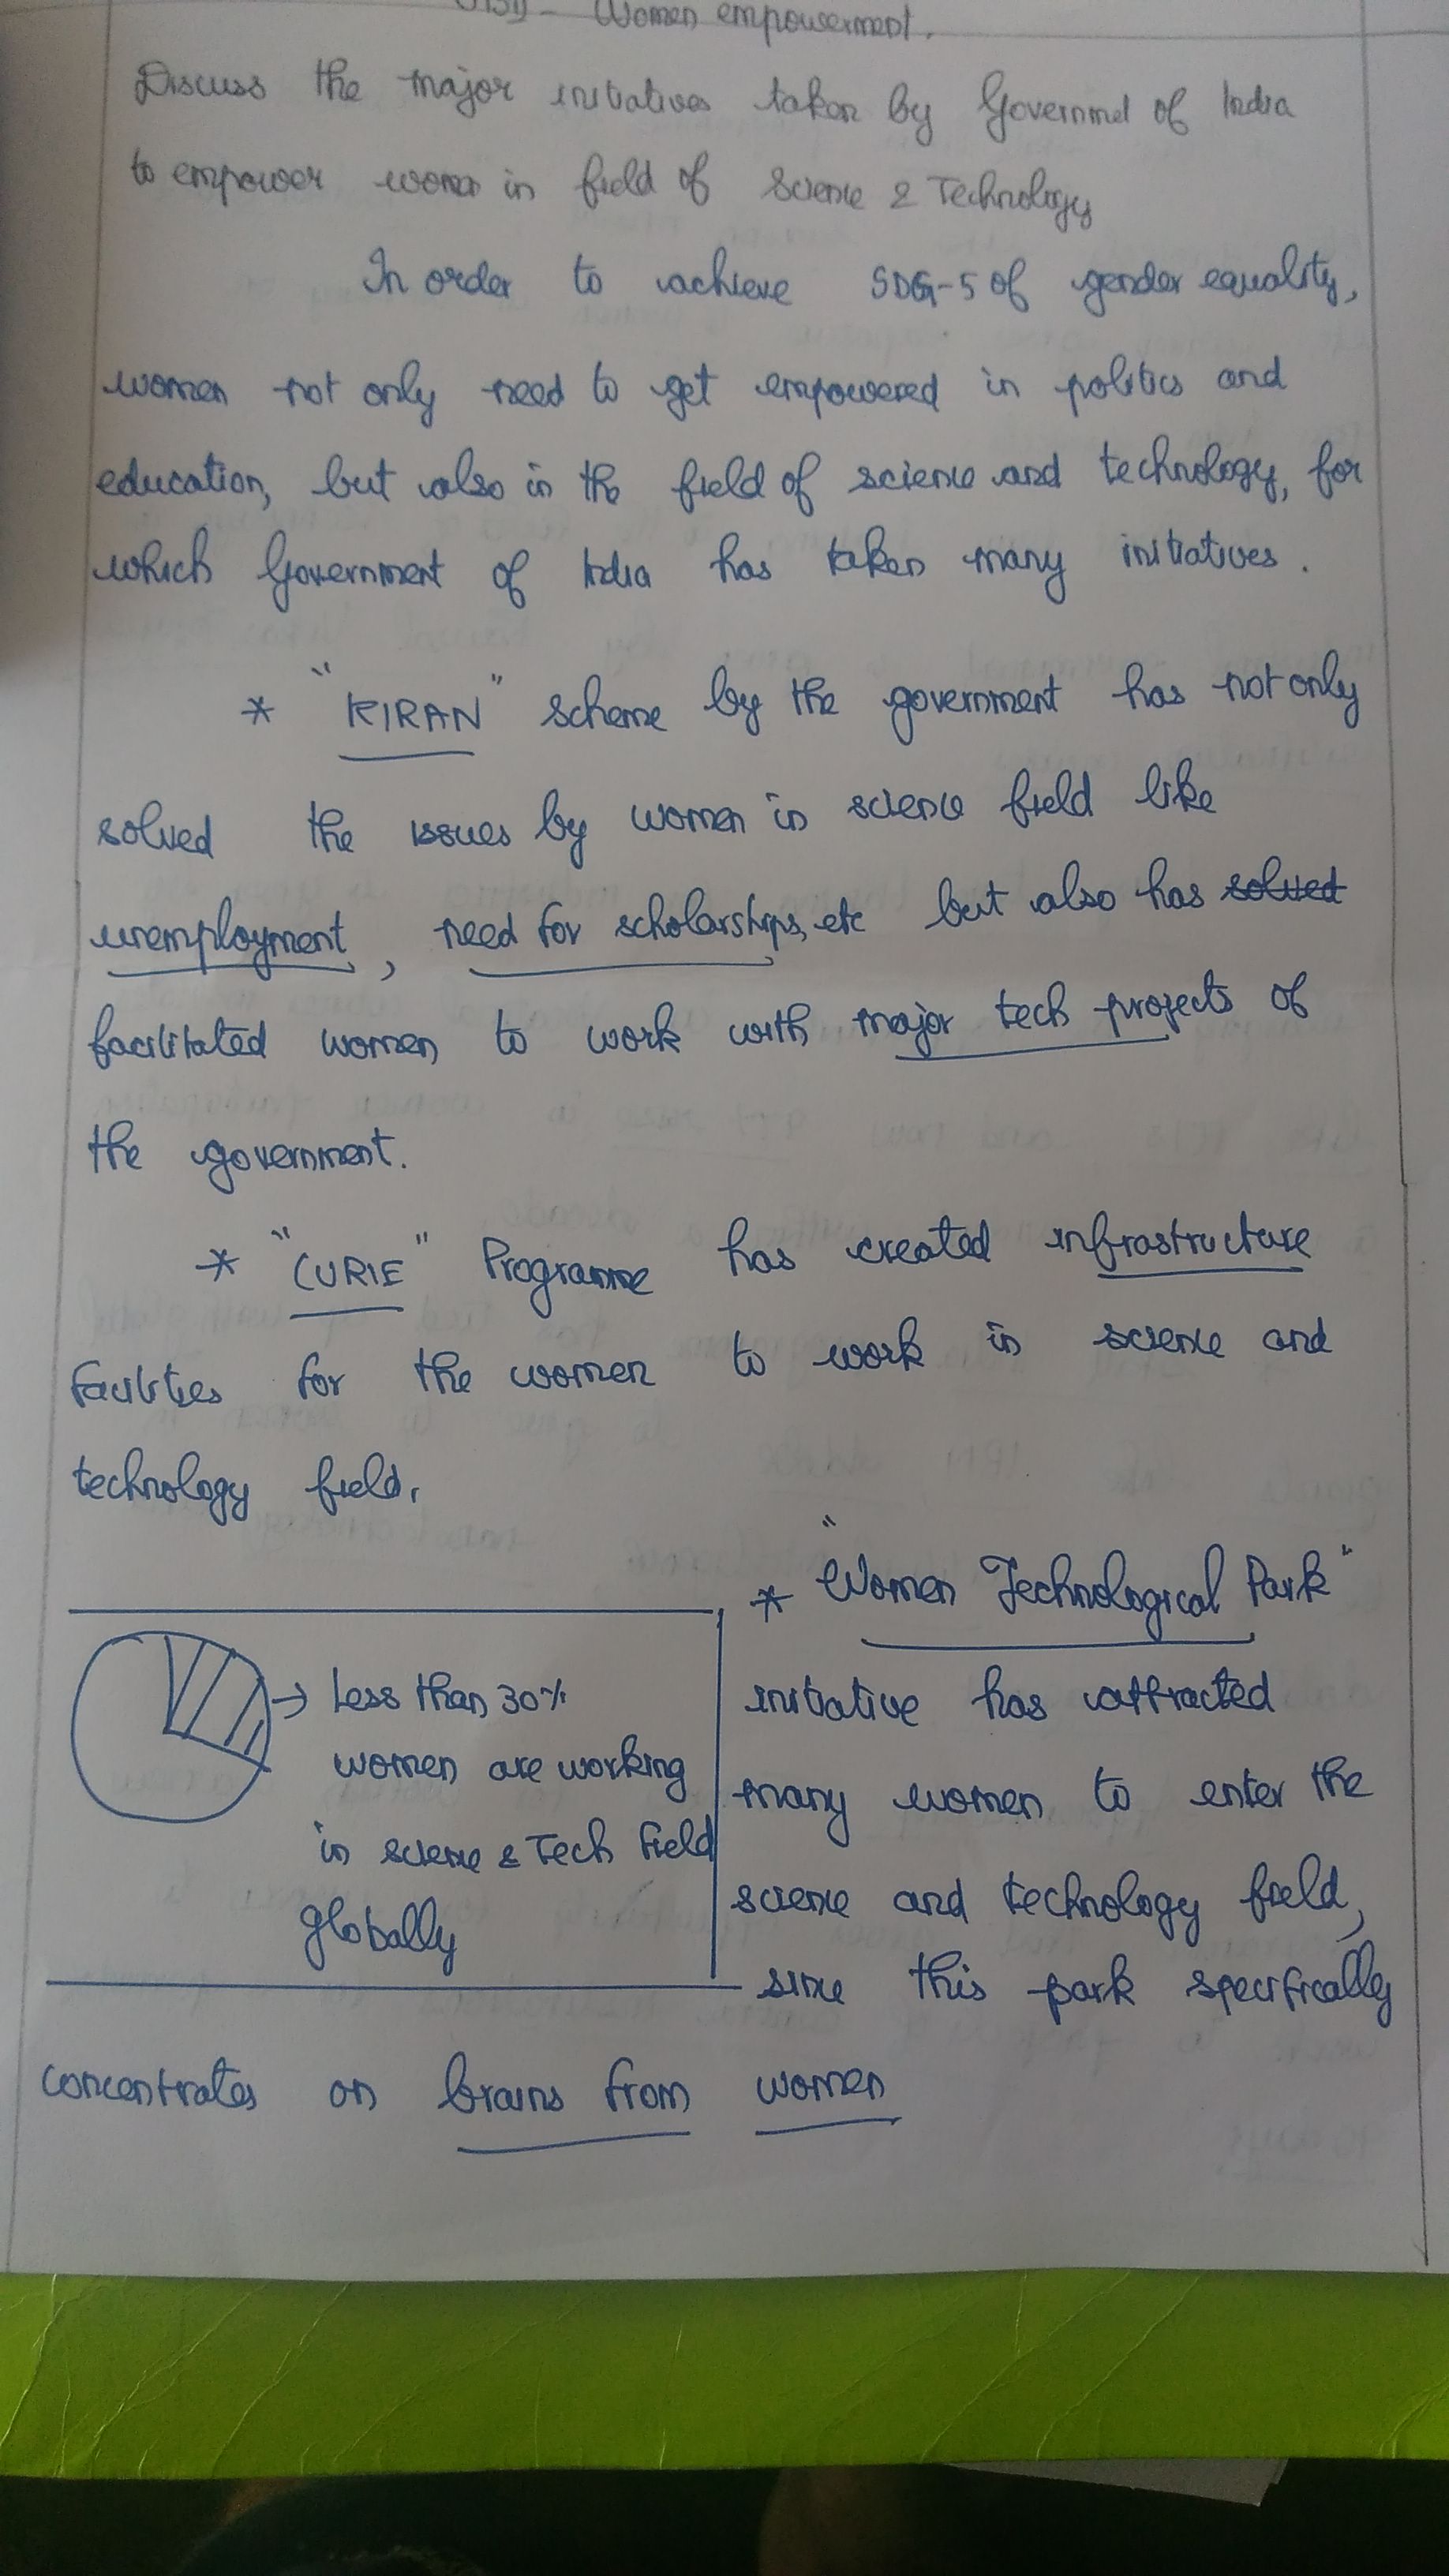 Women empowerment.
Discuss the major initiatives taken by Governmet of India
to empower women in field of Science & Technology
In order to achieve SDG-5 of gender equality,
women not only need to get empowered in politics and
education, but also in the field of science and technology, for
which Government of India has taken many initiatives.
* "KIRAN" scheme by the government has not only
solved the issues by women in science field like
unemployment, need for scholarships, etc but also has solved
facilitated women to work with major tech projects of
the government.
* "CURIE" Programme has created infrastructure
facilities for the women to work in science and
technology field.
* "Women Technological Park"
initiative has attracted
many women to enter the
science and technology field,
since this park specifically
concentrates on brains from women
→ Less than 30%
women are working
in science & Tech field
globally